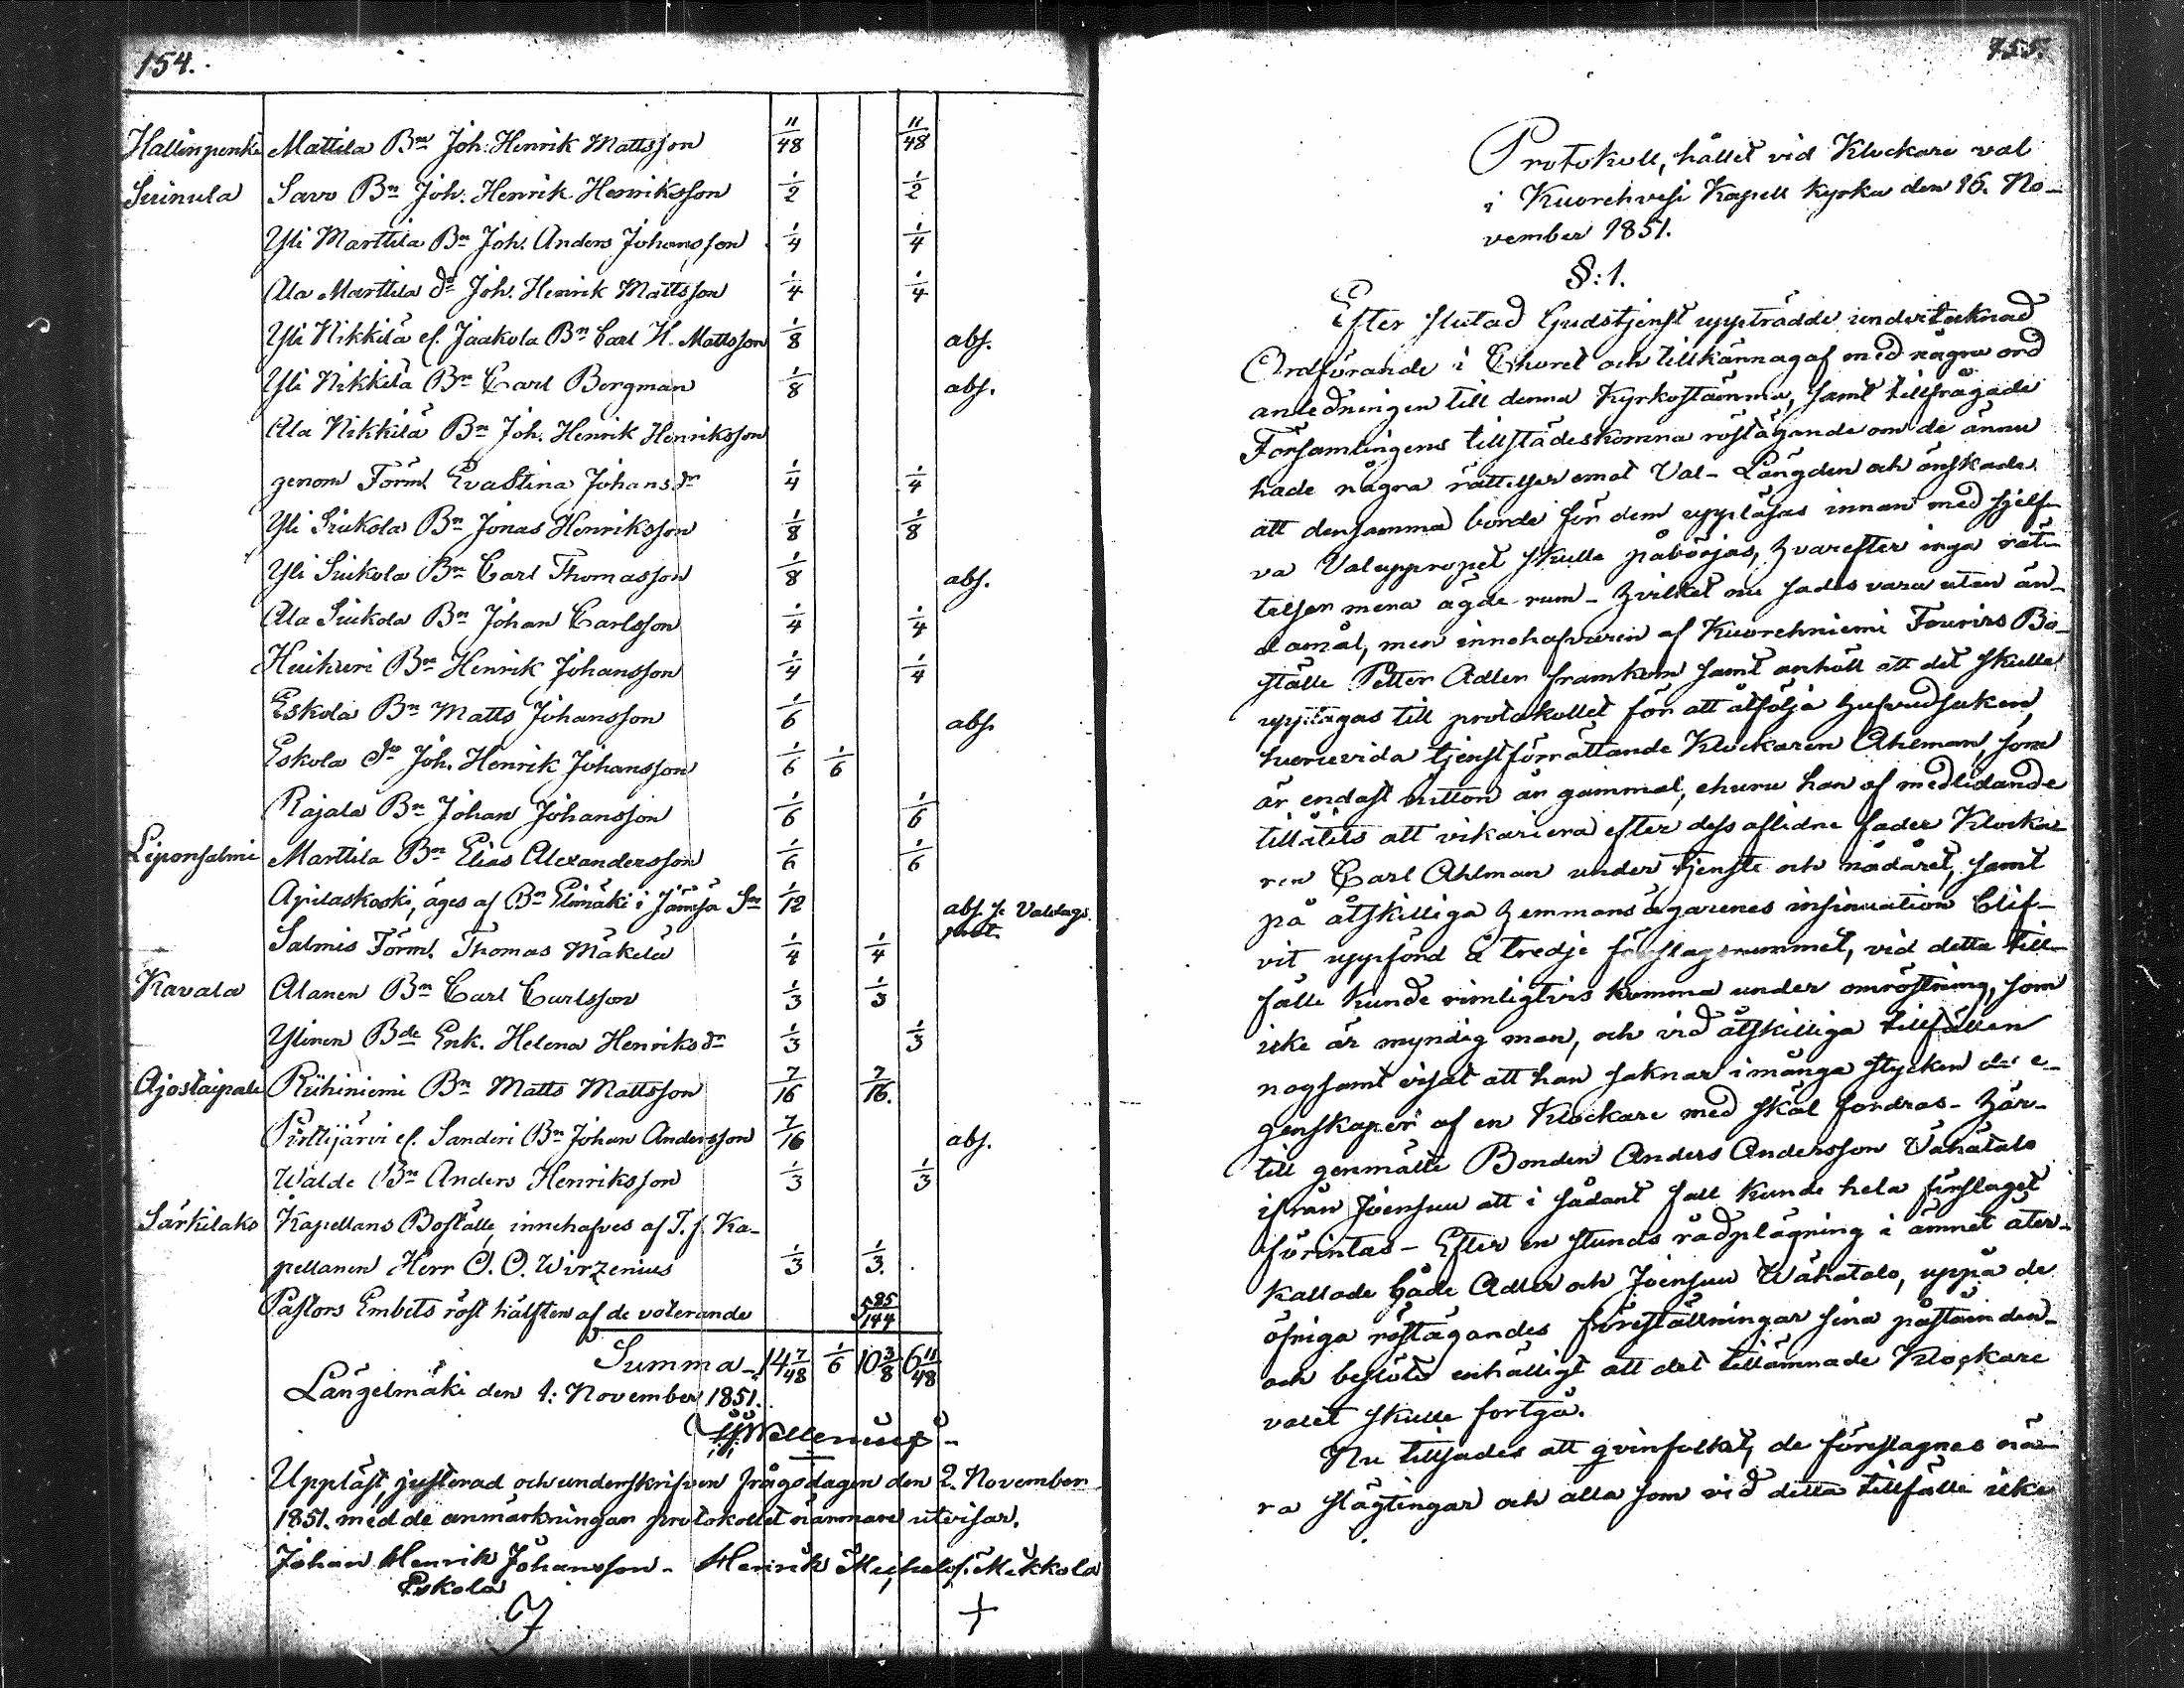 154.
Hallinpenki Mattila Bn Joh. Henrik Mattsson 11/48 11/48
Siinula Savo Bn Joh. Henrik Henriksson 1/2 1/2
Yli Marttila Bn Joh. Anders Johansson 1/4 1/4
Ala Marttila do Joh. Henrik Mattsson 1/4 1/4
Yli Nikkilä el. Jaakola Bn Carl H. Mattsson 1/8 abs.
Yli Nikkilä Bn Carl Bergman 1/8 abs.
Ala Nikkilä Bn Joh. Henrik Henriksson
genom Förm. Eva Stina Johansdr 1/4 1/4
Yli Siukola Bn Jonas Henriksson 1/8 1/8
Yli Siukola Bn Carl Thomasson 1/8 abs.
Ala Siukola Bn Johan Carlsson 1/4 1/4
Huihuri Bn Henrik Johansson 1/4 1/4
Eskola Bn Matts Johansson 1/6 abs.
Eskola do Joh. Henrik Johansson 1/6 1/6
Rajala Bn Johan Johansson 1/6 1/6
Liponsalmi Marttila Bn Elias Alexandersson 1/6 1/6
Apilaskoski, äges af Bn Elimäki i Jämsä Sn 1/12 abs. se Valdags
prot.
Salmis Förm. Thomas Mäkelä 1/4 1/4
Kavala Alanen Bn Carl Carlsson 1/3 1/3
Ylinen Bde Enk. Helena Henriksdr 1/3 1/3
Ajostaipale Riihiniemi Bn Matts Mattsson 7/16 7/16.
Pirttijärvi el. Sanderi Bn Johan Andersson 7/16 abs.
Walde Bn Anders Henriksson 1/3 1/3
Särkilaks Kapellans Boställe, innehafves af T. f. Ka-
pellanen Herr O. O. Wirzenius 1/3 1/3.
Pastors Embets röst hälften af de voterande 5 85/144
Summa - 14 7/48 1/6 10 3/8 6 11/48
Längelmäki den 1: November 1851.
Wallenius
Uppläst, justerad och underskrifven frågodagen den 2. November
1851. med de anmärkningar protokollet närmare utvisar.
Johan Henrik Johansson - Henrik Michelss. Mikkola
Eskola
+
155.
Protokoll, hållet vid Klockare val
i Kuorehvesi Kapell kyrka den 16. No-
vember 1851.
§: 1.
Efter slutad Gudstjenst uppträdde undertecknad
Ordförande i Choret och tillkännagaf med några ord
anledningen till denna Kyrkostämma, samt tillfrågade
Församlingens tillstädeskomna röstägande om de ännu
hade några rättelser emot Val-Längden och önskade
att densamma borde för dem uppläsas innan med sjelf-
va Valuppropet skulle påbörjas, hvarefter inga rät-
telser mera ägde rum - hvilket nu sades vara utan än-
damål, men innehafvaren af Kuorehniemi Fourirs Bo-
ställe Petter Adler framkom samt anhöll att det skulle
upptagas till protokollet för att åtfölja hufvudsaken,
huruvida tjenstförrättande Klockaren Ahlman, som
är endast nitton år gammal, ehuru han af medlidande
tillåtits att vikariera efter dess aflidne fader Klocka-
ren Carl Ahlman under tjenste och nådåret, samt
på åtskilliga hemmans ägarenes insinuation blif-
vit uppförd å tredje förslagsrummet, vid detta till-
fälle kunde rimligtvis komma under omröstning, som
icke är myndig man, och vid åtskilliga tillfällen
nogsamt visat att han saknar i många stycken de e-
genskaper af en Klockare med skäl fordras - Här-
till genmälte Bonden Anders Andersson Vähätalo
ifrån Joensuu att i sådant fall kunde hela förslaget
förintas - Efter en stunds rådplägning i ämnet åter-
kallade både Adler och Joensuu Wähätalo, uppå de
öfriga röstägandes föreställningar sina påståenden
och beslöts enhälligt att det tillämnade Klockare
valet skulle fortgå.
Nu tillsades att qvinfolket, de föreslagnes nä-
ra slägtingar och alla som vid detta tillfälle icke